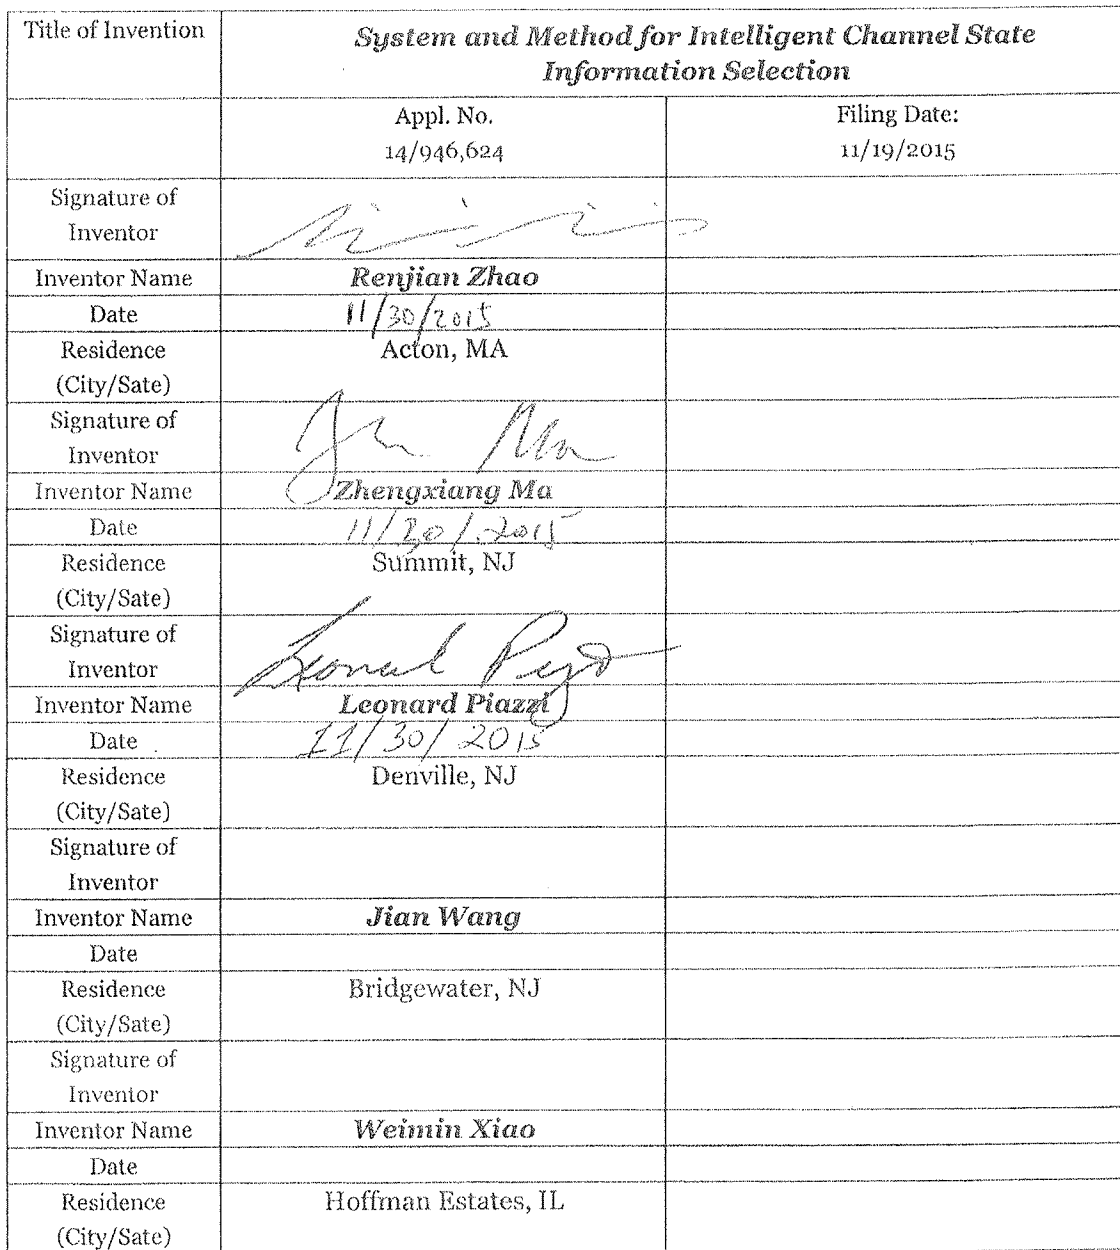 Title of Invention
System and Method for Intelligent Channel State
Information Selection
Appl. No.
14/946,624
Filing Date:
11/19/2015
Signature of
Inventor
Inventor Name
Renjian Zhao
Date
11/30/2015
Residence
(City/Sate)
Acton, MA
Signature of
Inventor
Inventor Name
Zhengxiang Ma
Date
11/30/2015
Residence
(City/Sate)
Summit, NJ
Signature of
Inventor
Inventor Name
Leonard Piazzi
Date
11/30/2015
Residence
(City/Sate)
Denville, NJ
Signature of
Inventor
Inventor Name
Jian Wang
Date
Residence
(City/Sate)
Bridgewater, NJ
Signature of
Inventor
Inventor Name
Weimin Xiao
Date
Residence
(City/Sate)
Hoffman Estates, IL